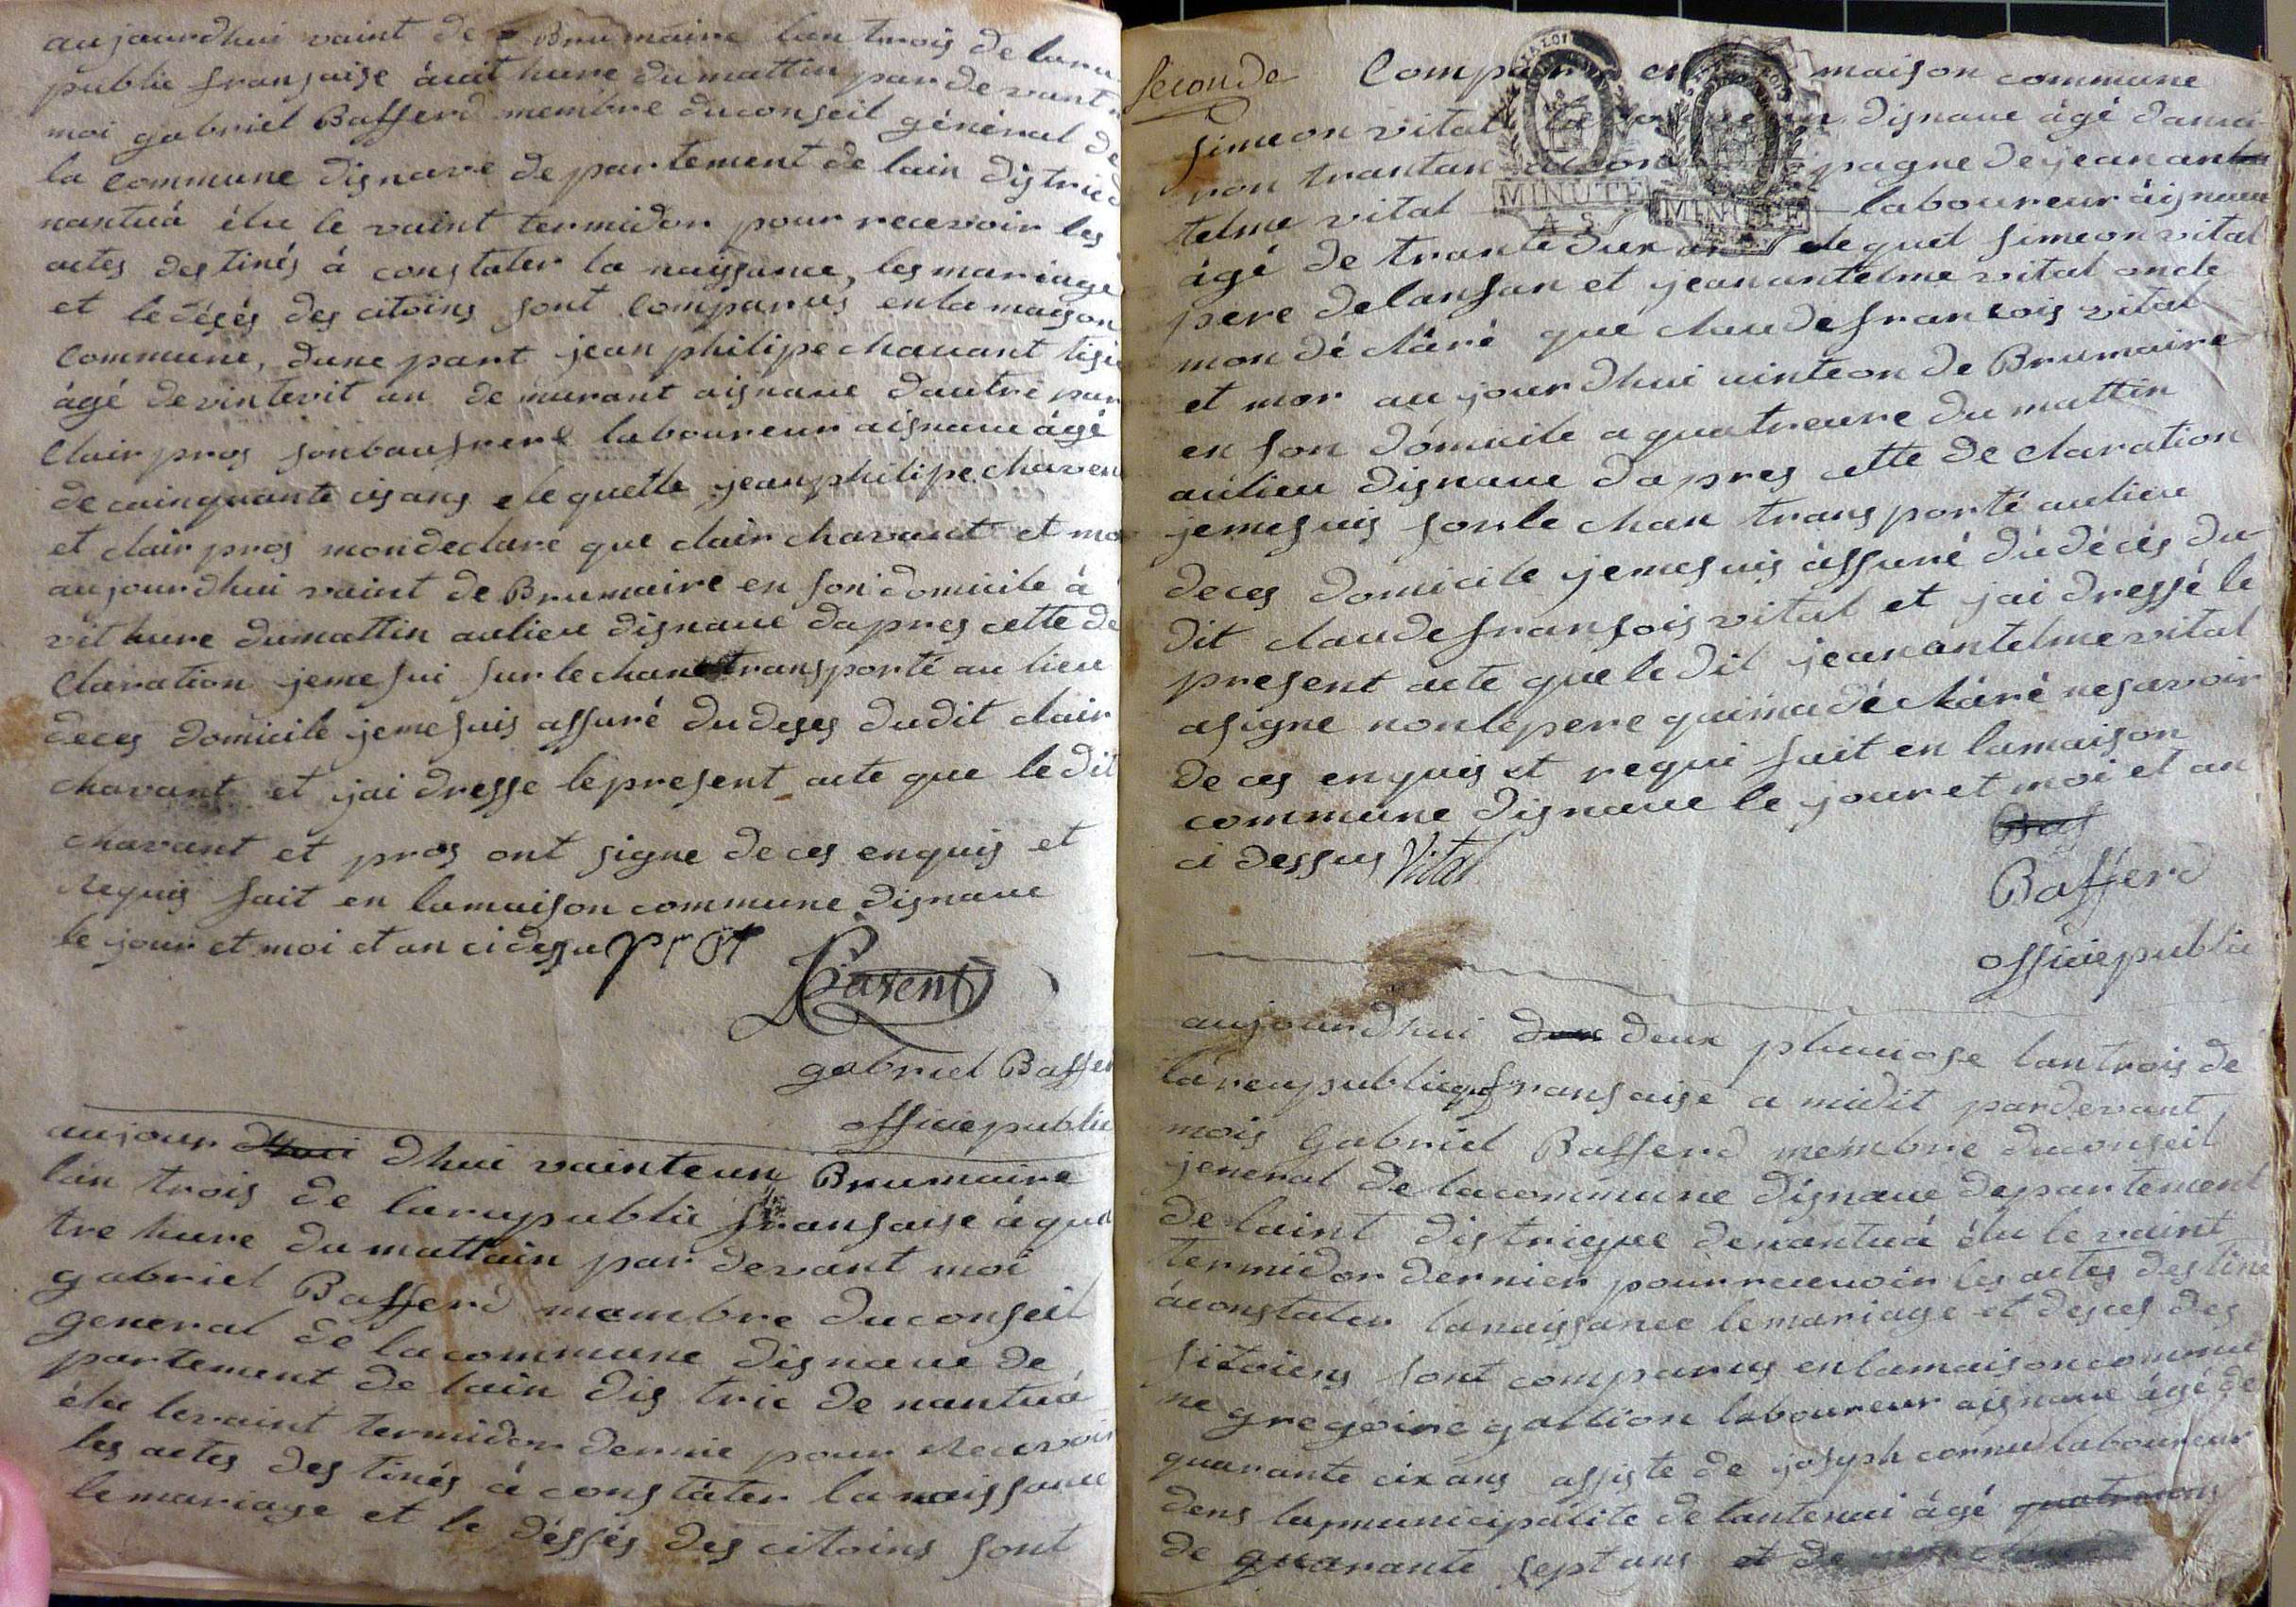 aujourdhui vaint de Brumaire lan trois de laru
public fransaise àuit hure du mattin par devant
moi gabriel Bafferd membre du conseil général de
la Commune dignave departement de lain district
nantuá élu le vaint termidor pour recevoir les
actes destinés à constater la naissance, les mariage
et le dégés des citoins sont Comparus enlamaison
Commune, dune part jean philipe chauant tisie
âgé devintevit an demurant aignaue dautre par
Clair pros sonbaufrere laboureur aignaue âgé
decainquante cis ans elequelle jean philipe chaven
et clair pros mondeclaré que clair chavant et mo
aujourdhui vaint de Brumaire en son domicile à
vit hure dumattin aulieu dignaue dapres cette de
Claration jemesui sur le chan transporté au lieu
deces domicile jemesuis assuré du deses dudit clair
chavant et jai dresse lepresent acte que le dit
chavant et pros ont signe de ces enquis et
Requis fait en lamaison commune dignaue
le jour et moi et an ci desu Prot
Chavent
gabriel Baffer
officiepublic
aujour dhui dhui vainteun Brumaire
lan trois de larupublic fransaise à qua
tre hure du mattain par devant moi
gabriel Bafferd mambre duconseil
general de lacommune dignaue de
partement de lain dis tric de nantuá
élu levaint termidor dernie pour Recevoir
les actes destinés à constàter la naissance
lemariage et le déssés des citoins sont
seconde Comparu en maison commune
simeon vital dignaue âgé danvi
ron trantan pagne de jean an
telme vital laboureur àignaue
âgé de trante deux an elequel simeon vital
pere delansan et jean antelme vital oncle
mon déclâré que claude francois vital
et mor aujourdhui uinteon de Brumaire
en son domicile a quatreure du mattin
aulieu dignaue dapres cette declaration
jemesuis sorle chan transporté aulieu
deces domicile jemesuis âssuré dudécés du
dit claude fransois vital et jai dressé le
present acte que le dit jean antelme vital
asigne nonlepere quima déclàré nesavoir
de ces enquis et requi fait en lamaison
commune dignaue le jour et moi et an
ci dessus Vital
Baf
Bafferd
officiepublic
aujourdhui deux deux pluuiose lan trois de
lareupublique fransaise a midit pardevant
mois Gabriel Bafferd membre duconseil
jeneral de lacommune dignaue departement
de laint distrique denantuá élu le vaint
termidor dernier pour receuoir les actes destine
àconstater lanaissance lemariage et deses des
sitoiens sont comparus en lamaison commu
ne gregoire gallion laboureur aignaue âgé de
quarante cix ans assiste de joseph cornu laboureur
dens lamunicipalite de lantenai âgé
de quarante sept ans et de
MINUTE
MINUTE